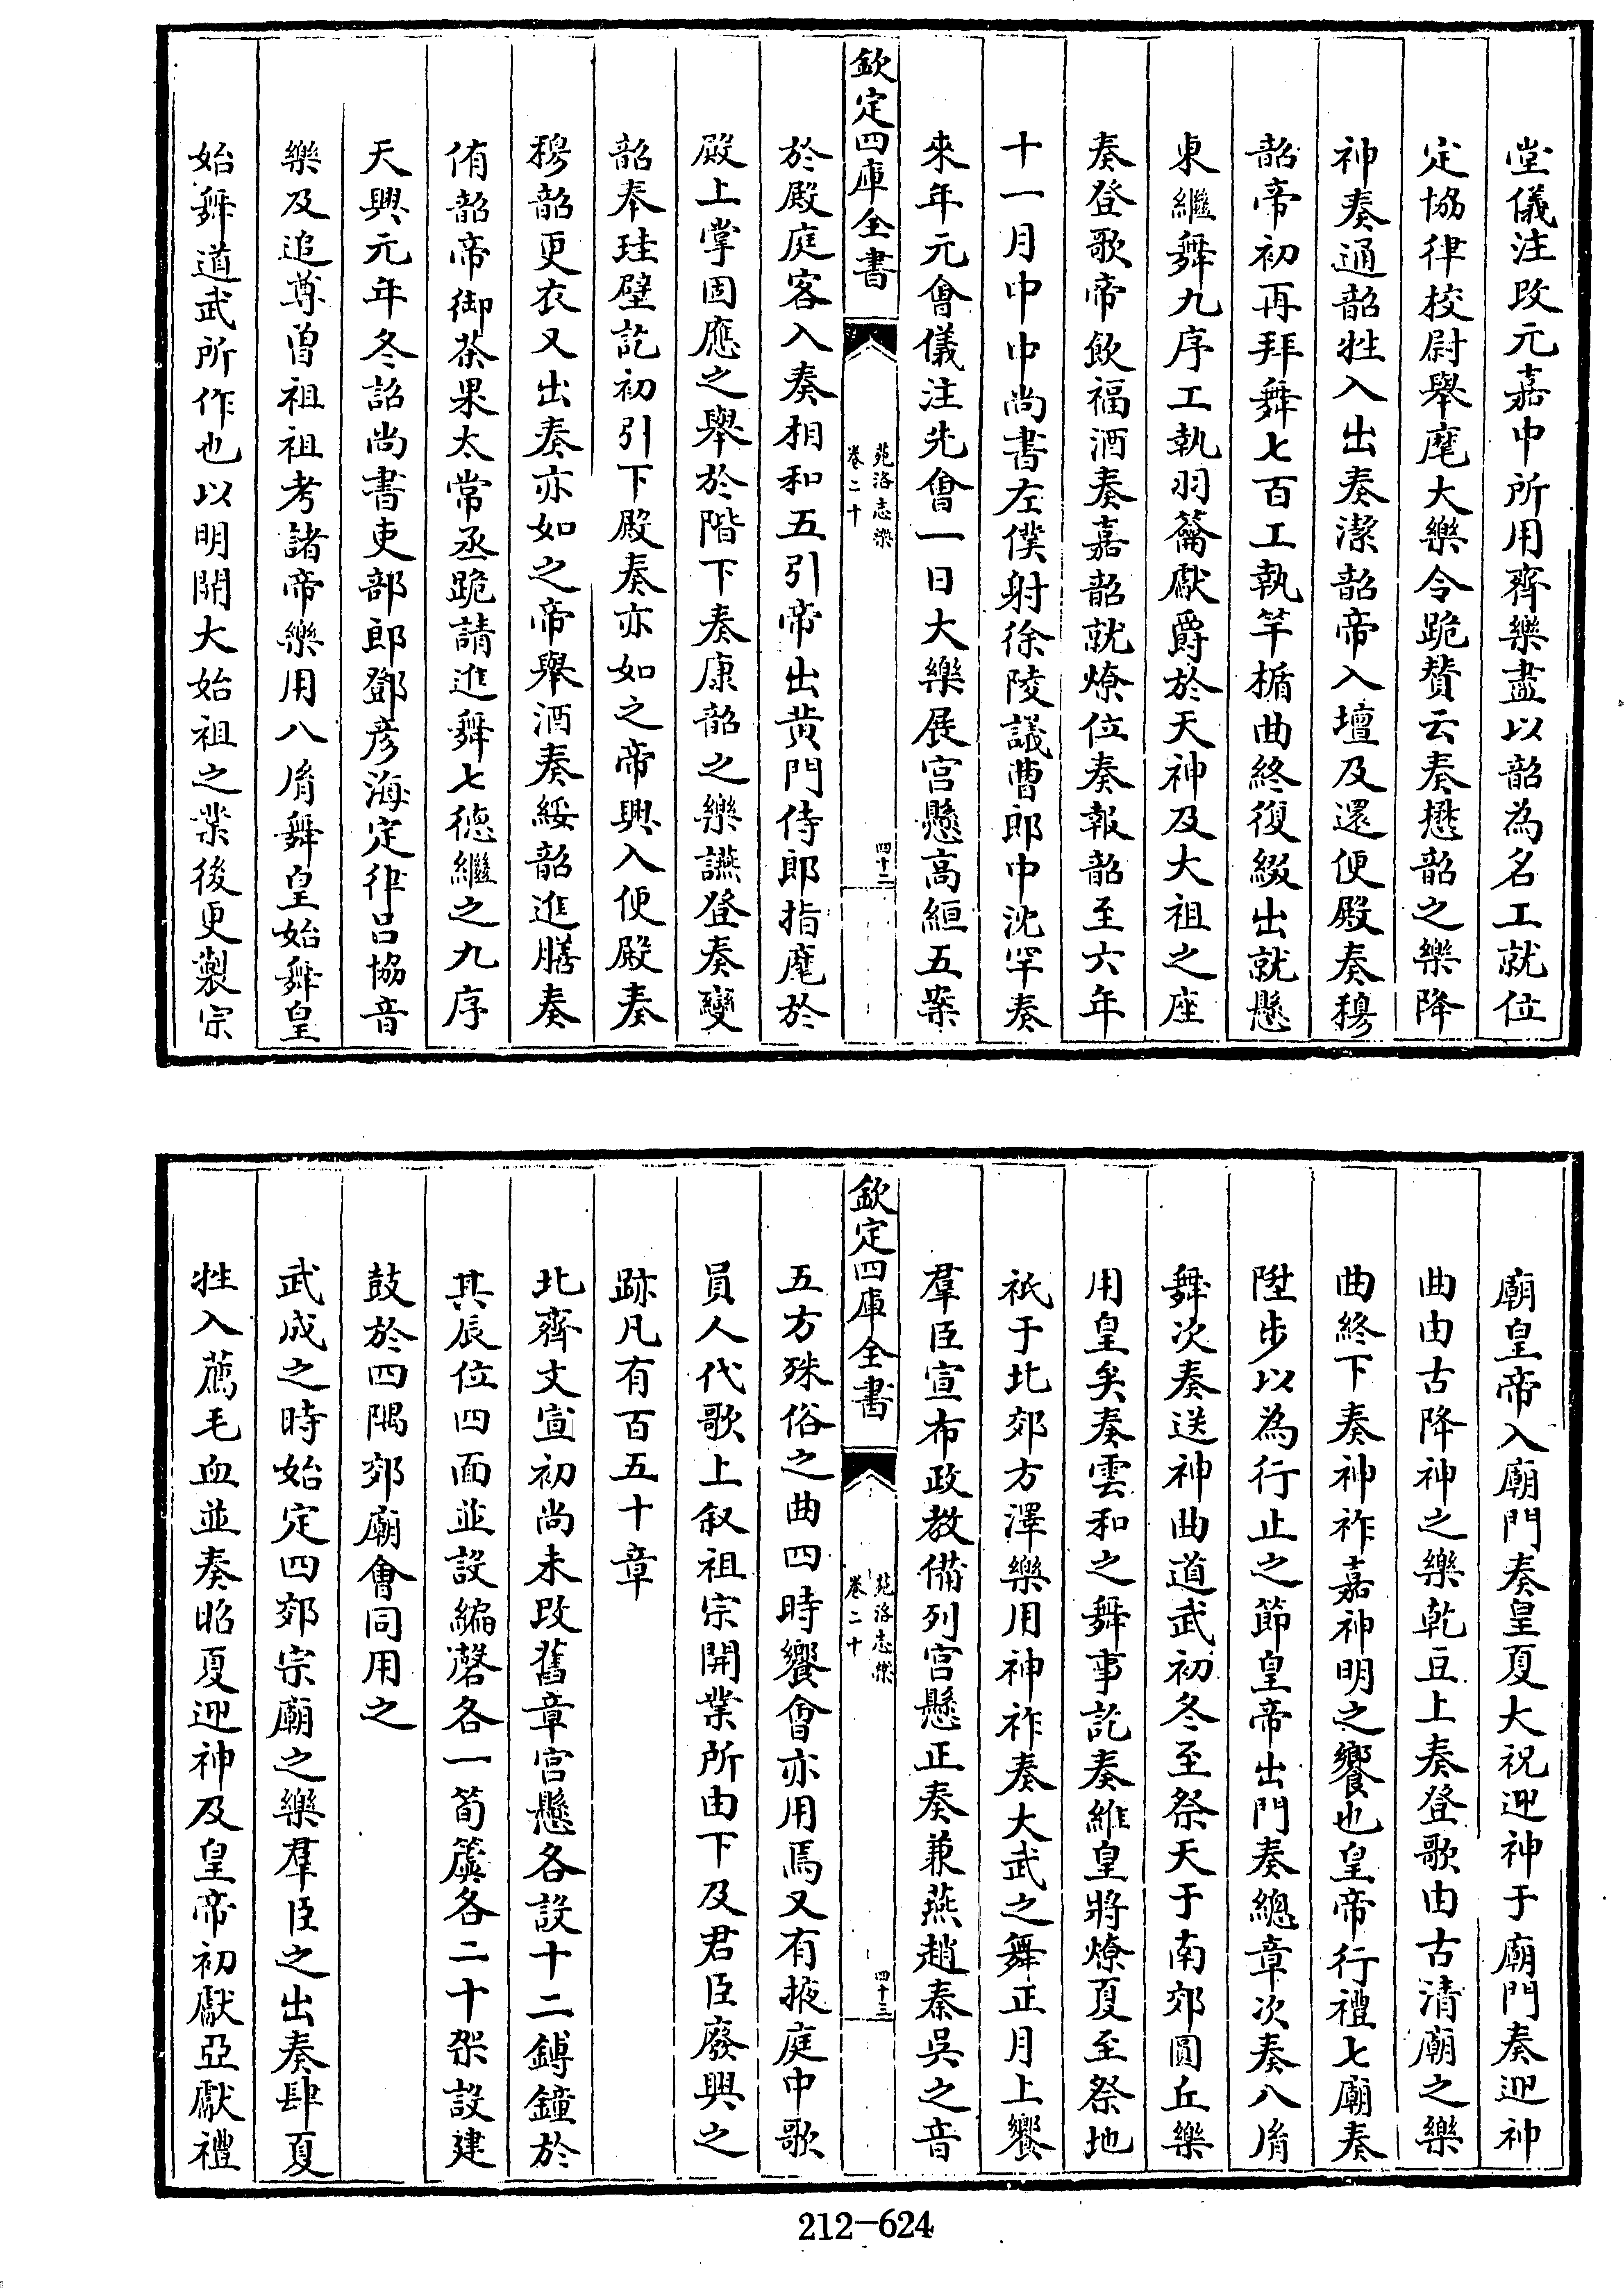 堂儀注改元嘉中所用齊樂盡以韶為名工就位
定協律校尉舉麾大樂令跪贊云奏懋韶之樂降
神奏通韶牲入出奏潔韶帝入壇及還便殿奏穆
韶帝初再拜舞七百工執竿楯曲終復綴出就懸
東繼舞九序工執羽籥獻爵於天神及大祖之座
奏登歌帝飲福酒奏嘉韶就燎位奏報韶至六年
十一月中中尚書左僕射徐陵議曹郎中沈罕奏
來年元會儀注先會一日大樂展宫懸高絙五案
欽定四庫全書
苑洛志樂
卷二十
四十二
於殿庭客入奏相和五引帝出黄門侍郎指麾於
殿上掌固應之舉於階下奏康韶之樂讌登奏變
韶奉珪璧訖初引下殿奏亦如之帝興入便殿奏
穆韶更衣又出奏亦如之帝舉酒奏綏韶進膳奏
侑韶帝御茶果太常丞跪請進舞七德繼之九序
天興元年冬詔尚書吏部郎鄧彦海定律吕協音
樂及追尊曽祖祖考諸帝樂用八佾舞皇始舞皇
始舞道武所作也以明開大始祖之業後更製宗
廟皇帝入廟門奏皇夏大祝迎神于廟門奏迎神
曲由古降神之樂乾豆上奏登歌由古清廟之樂
曲終下奏神祚嘉神明之饗也皇帝行禮七廟奏
陛步以為行止之節皇帝出門奏總章次奏八佾
舞次奏送神曲道武初冬至祭天于南郊圓丘樂
用皇矣奏雲和之舞事訖奏維皇將燎夏至祭地
祇于北郊方澤樂用神祚奏大武之舞正月上饗
羣臣宣布政教備列宫懸正奏兼燕趙秦吳之音
欽定四庫全書
苑洛志樂
卷二十
四十三
五方殊俗之曲四時饗會亦用焉又有掖庭中歌
員人代歌上叙祖宗開業所由下及君臣廢興之
跡凡有百五十章
北齊文宣初尚未改舊章宫懸各設十二鎛鐘於
其辰位四面並設編磬各一筍簴各二十架設建
鼓於四隅郊廟會同用之
武成之時始定四郊宗廟之樂羣臣之出奏肆夏
牲入薦毛血並奏昭夏迎神及皇帝初獻亞獻禮
212-624